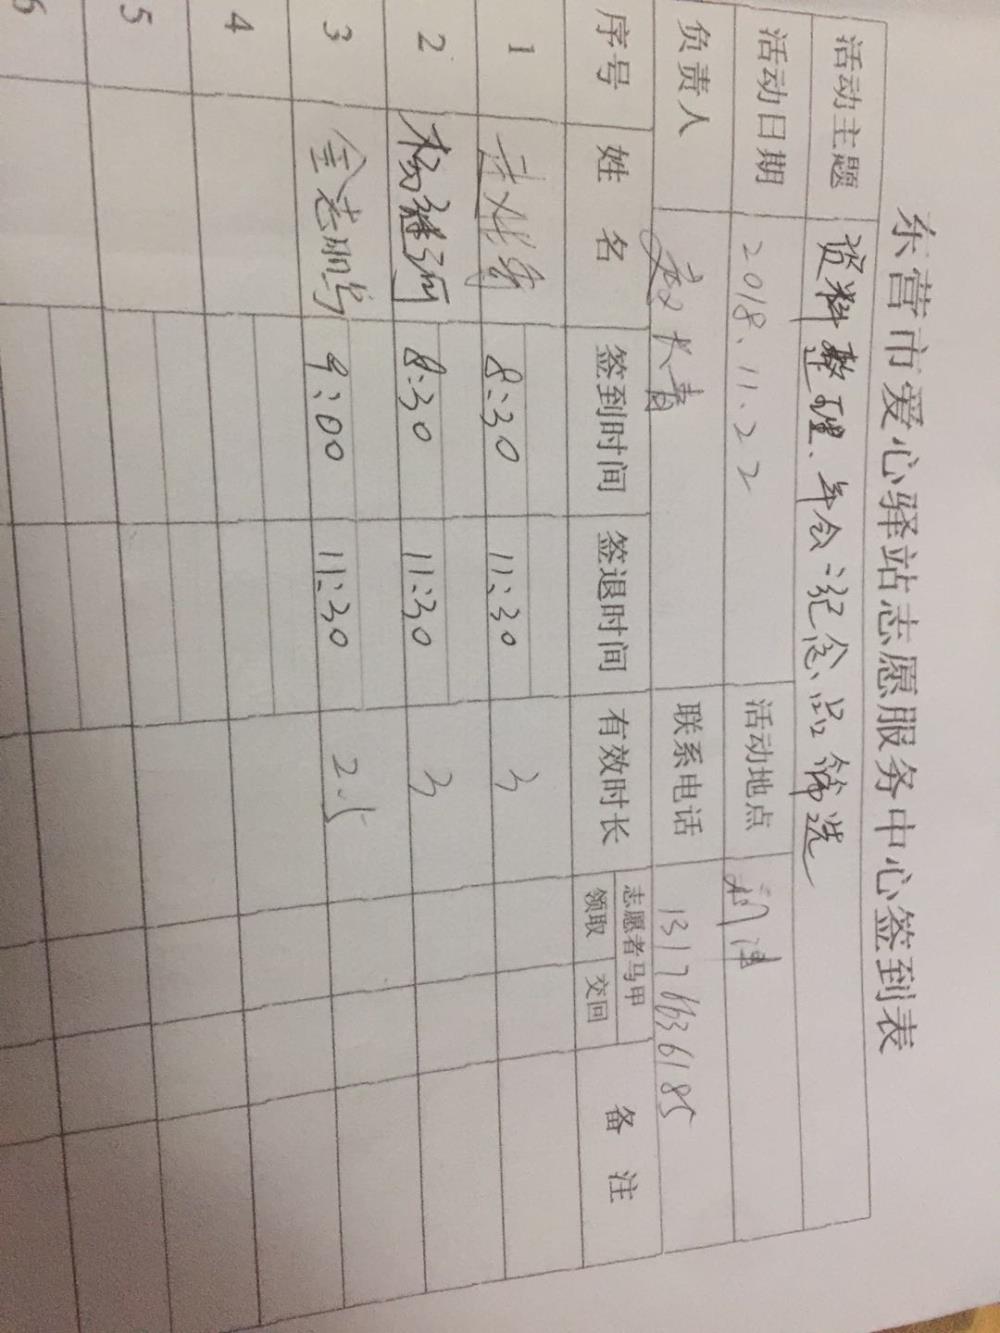 东营市爱心驿站志愿服务中心签到表
活动主题 资料整理、年会纪念品筛选
活动日期 2018.11.22 活动地点
负责人 赵长青 联系电话 13176636185
序号 姓名 签到时间 签退时间 有效时长 志愿者马甲 领取 交回 备注
1 8:30 11:30 3
2 杨继河 8:30 11:30 3
3 金志鹏 9:00 11:30 2.5
4
5
6